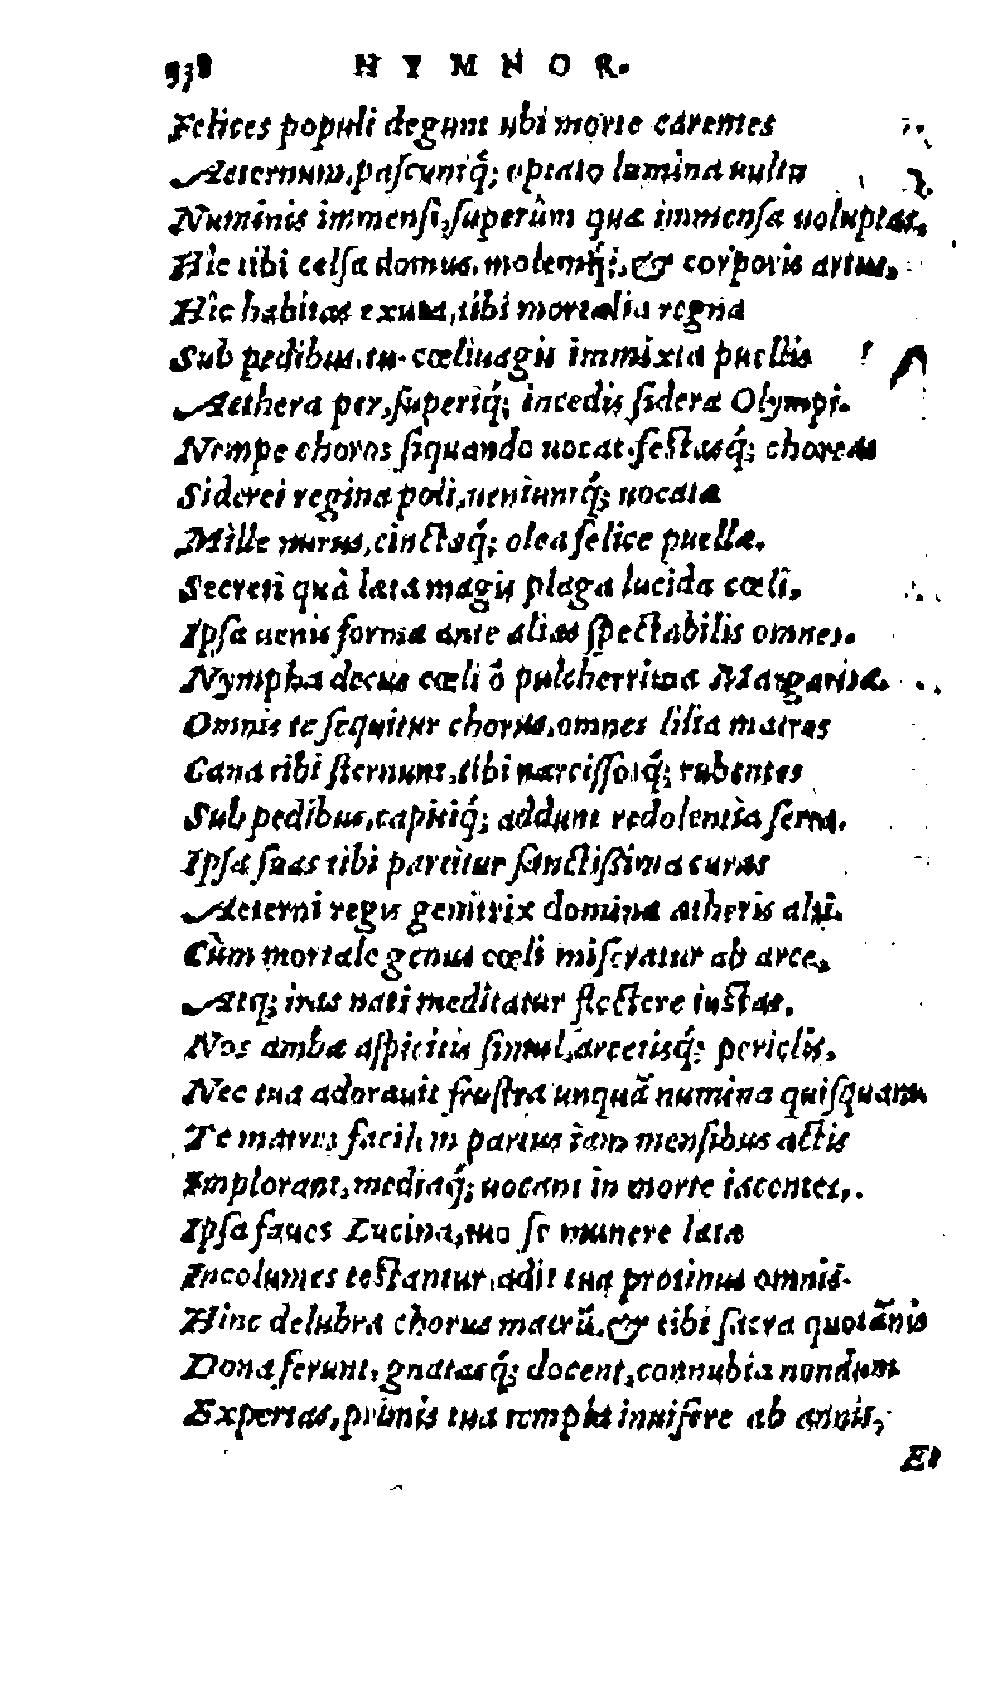 938 HYMNOR.
Felices populi degunt ubi morte carentes
Aeternum, pascuntq́; optato lumina uultu
Numinis immensi, superûm quæ immensa uoluptas,
Hîc tibi celsa domus, molemq́;, & corporis artus,
Hîc habitas exuta, tibi mortalia regna
Sub pedibus, tu cœliuagis immixta puellis
Aethera per, superiq́; incedis sidera Olympi.
Nempe choros siquando uocat, festasq́; choreas
Siderei regina poli, ueniuntq́; uocatæ
Mille nurus, cinctæq́; olea felice puellæ.
Secreti quà lata magis plaga lucida cœli,
Ipsa uenis forma ante alias spectabilis omnes.
Nympha decus cœli ô pulcherrima Margarita.
Omnis te sequitur chorus, omnes lilia matres
Cana tibi sternunt, tibi narcissosq́; rubentes
Sub pedibus, capitiq́; addunt redolentia serta.
Ipsa suas tibi partitur sanctissima curas
Aeterni regis genitrix domina ætheris alti.
Cùm mortale genus cœli miseratur ab arce,
Atq; iras nati meditatur flectere iustas.
Nos ambæ aspicitis simul, arcetisq́; periclis,
Nec tua adorauit frustra unquã numina quisquam
Te matres facilem partus iam mensibus actis
Implorant, mediaq́; uocant in morte iacentes,
Ipsa faues Lucina, tuo se munere læta
Incolumes testantur, adit tua protinus omnis
Hinc delubra chorus matrũ, & tibi sacra quotãnis
Dona ferunt, gnatasq́; docent, connubia nondum
Expertas, primis tua templa inuisere ab annis,
Et